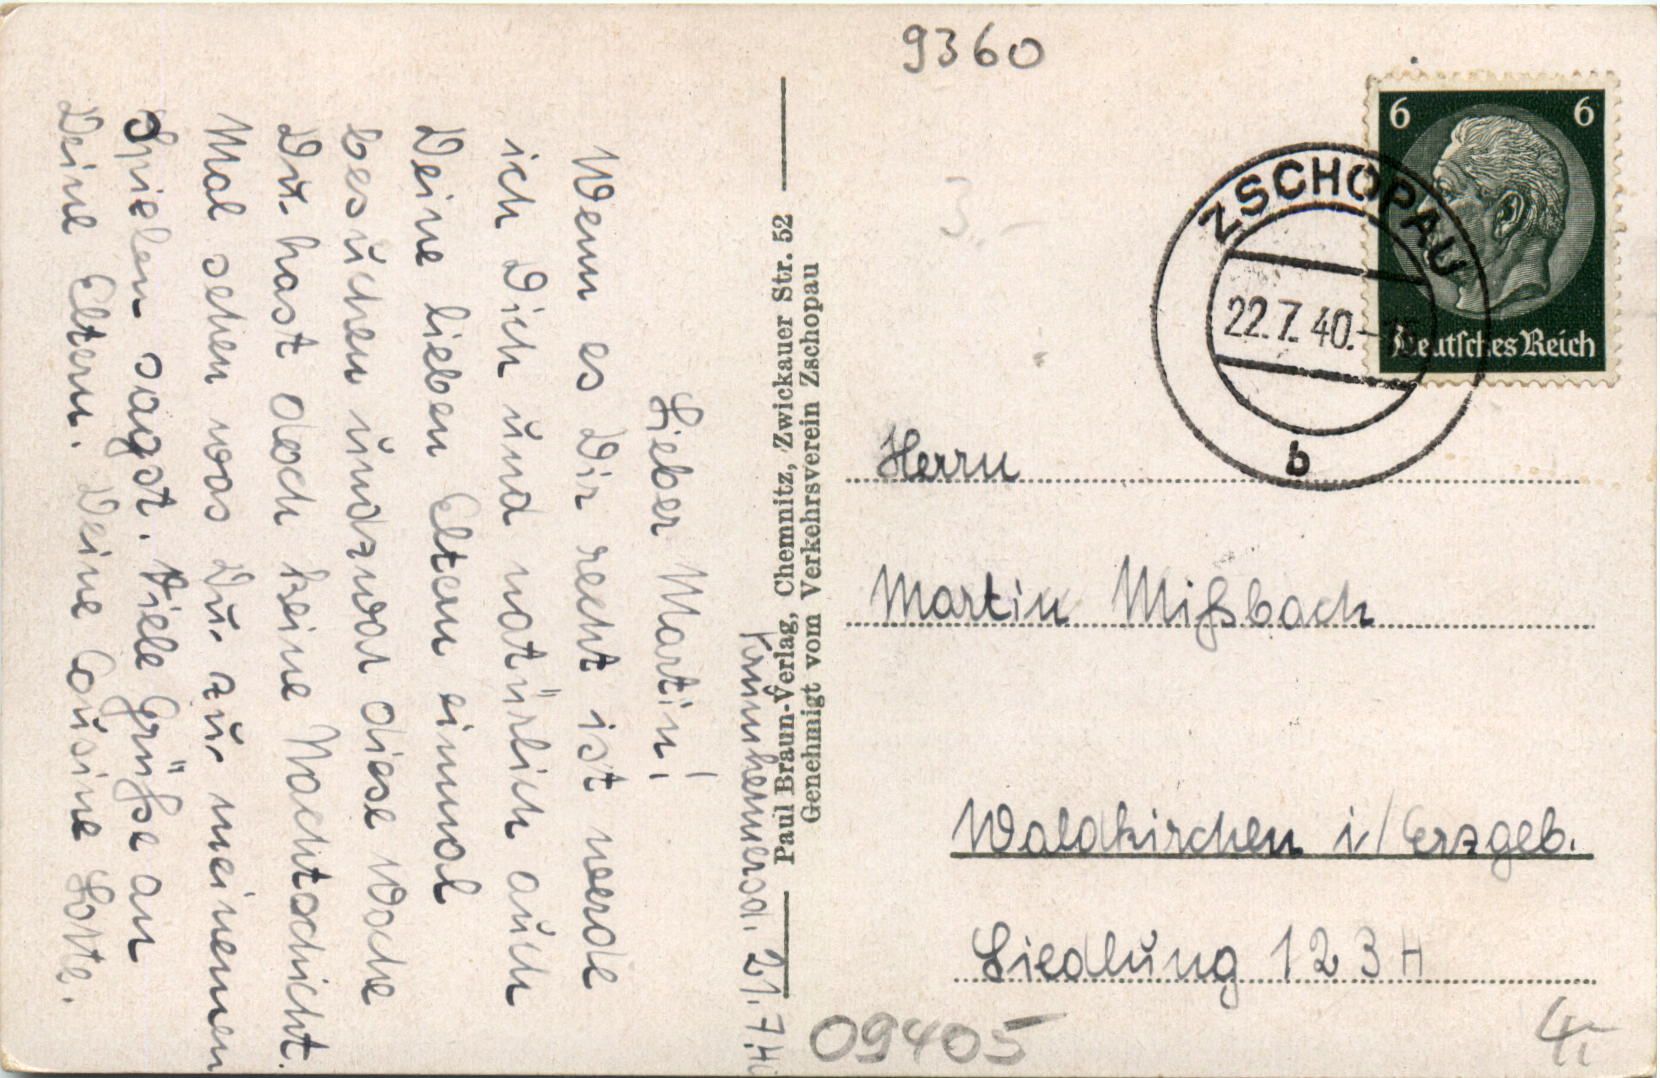 Krumhermersd. 21.7.40
Lieber Martin!
Wenn es Dir recht ist werde
ich Dich und natürlich auch
Deine lieben Eltern einmal
besuchen undzwar diese Woche
Du hast doch keine Nachtschicht.
Mal sehen was Du zu meinemen
Spielen sagst. Viele Grüße an
Deine Eltern. Deine Cousine Lotte.
Paul Braun-Verlag, Chemnitz, Zwickauer Str. 52
Genehmigt vom Verkehrsverein Zschopau
9360
3.-
6 6
Deutsches Reich
ZSCHOPAU
22.7.40.-15
b
Herrn
Martin Mißbach
Waldkirchen i/Erzgeb.
Siedlung 123H
09405
4,-